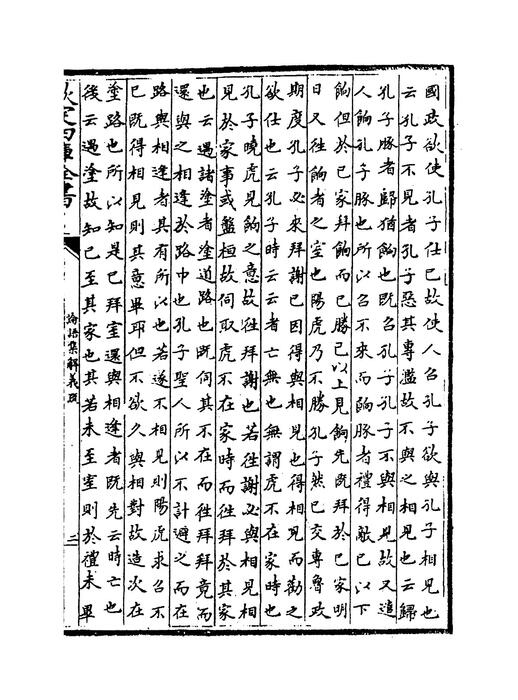 國政欲使孔子仕已故使人召孔子欲與孔子相見也
云孔子不見者孔子惡其專濫故不與之相見也云歸
孔子豚者歸猶餉也既召孔子孔子不與相見故又遣
人餉孔子豚也所以召不來而餉豚者禮得敵已以下
餉但於已家拜餉而已勝已以上見餉先既拜於已家明
日又往餉者之室也陽虎乃不勝孔子然已交專魯政
期度孔子必來拜謝已因得與相見也得相見而勸之
欲仕也云孔子時云云者亡無也無謂虎不在家時也
孔子曉虎見餉之意故往拜謝也若往謝必與相見相
見於家事或盤桓故伺取虎不在家時而往拜於其家
也云遇諸塗者塗道路也既伺其不在而往拜拜竟而
還與之相逢於路中也孔子聖人所以不計避之而在
路與相逢者其有所以也若遂不相見則陽虎求召不
已既得相見則其意畢耶但不欲久與相對故造次在
塗路也所以知是已拜室還與相逢者既先云時亡也
後云遇塗故知已至其家也其若未至室則於禮未畢
欽定四庫全書
論語集解義疏
三